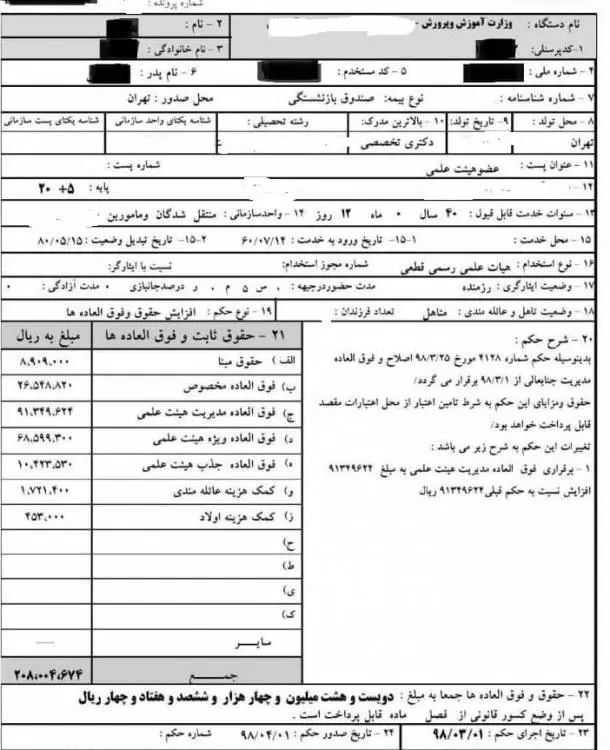 شماره پرونده :
نام دستگاه : وزارت آموزش وپرورش - ۲ - نام :
۱-کدپرسنلی: ۳ - نام خانوادگی :
۴ - شماره ملی : ۵ - کد مستخدم : ۶ - نام پدر :
۷ - شماره شناسنامه : نوع بیمه: صندوق بازنشستگی محل صدور : تهران
۸ - محل تولد : ۹- تاریخ تولد: ۱۰ - بالاترین مدرک: رشته تحصیلی : شناسه یکتای واحد سازمانی شناسه یکتای پست سازمانی
تهران دکتری تخصصی
۱۱ - عنوان پست : عضوهیئت علمی شماره پست :
۱۲- پایه : ۵+ ۲۰
۱۳ - سنوات خدمت قابل قبول : ۴۰ سال ۰ ماه ۱۲ روز ۱۴ - واحدسازمانی : منتقل شدگان ومامورین
۱۵ - محل خدمت : ۱-۱۵ تاریخ ورود به خدمت : ۶۰/۰۷/۱۴ ۲-۱۵ تاریخ تبدیل وضعیت : ۸۰/۰۵/۱۵
۱۶ - نوع استخدام : هیات علمی رسمی قطعی شماره مجوز استخدام: نسبت با ایثارگر:
۱۷ - وضعیت ایثارگری : رزمنده مدت حضوردرجبهه : ، س ۵ م ، و درصدجانبازی ۰ مدت آزادگی : ۰
۱۸ - وضعیت تاهل و عائله مندی : متاهل تعداد فرزندان : ۱۹ - نوع حکم : افزایش حقوق وفوق العاده ها
۲۰ - شرح حکم :
بدینوسیله حکم شماره ۴۱۲۸ مورخ ۹۸/۳/۲۵ اصلاح و فوق العاده
مدیریت جنابعالی از ۹۸/۳/۱ برقرار می گردد/
حقوق ومزایای این حکم به شرط تامین اعتبار از محل اعتبارات مقصد
قابل پرداخت خواهد بود/
تغییرات این حکم به شرح زیر می باشد :
۱ - برقراری فوق العاده مدیریت هیئت علمی به مبلغ ۹۱۳۴۹۶۲۴
افزایش نسبت به حکم قبلی۹۱۳۴۹۶۲۴ ریال
۲۱ - حقوق ثابت و فوق العاده ها مبلغ به ریال
الف ) حقوق مبنا ۸,۹۰۹,۰۰۰
ب) فوق العاده مخصوص ۲۶,۵۴۸,۸۲۰
ج) فوق العاده مدیریت هیئت علمی ۹۱,۳۴۹,۶۲۴
د) فوق العاده ویژه هیئت علمی ۶۸,۵۹۹,۳۰۰
ه) فوق العاده جذب هیئت علمی ۱۰,۴۲۳,۵۳۰
و) کمک هزینه عائله مندی ۱,۷۲۱,۴۰۰
ز) کمک هزینه اولاد ۴۵۳,۰۰۰
ح)
ط)
ی)
ک)
سایــر ـــــ
جمــــع ۲۰۸,۰۰۴,۶۷۴
۲۲ - حقوق و فوق العاده ها جمعا به مبلغ : دویست و هشت میلیون و چهار هزار و ششصد و هفتاد و چهار ریال
پس از وضع کسور قانونی از فصل ماده قابل پرداخت است .
۲۳ - تاریخ اجرای حکم : ۹۸/۰۳/۰۱ ۲۴ - تاریخ صدور حکم : ۹۸/۰۴/۰۱ شماره حکم :